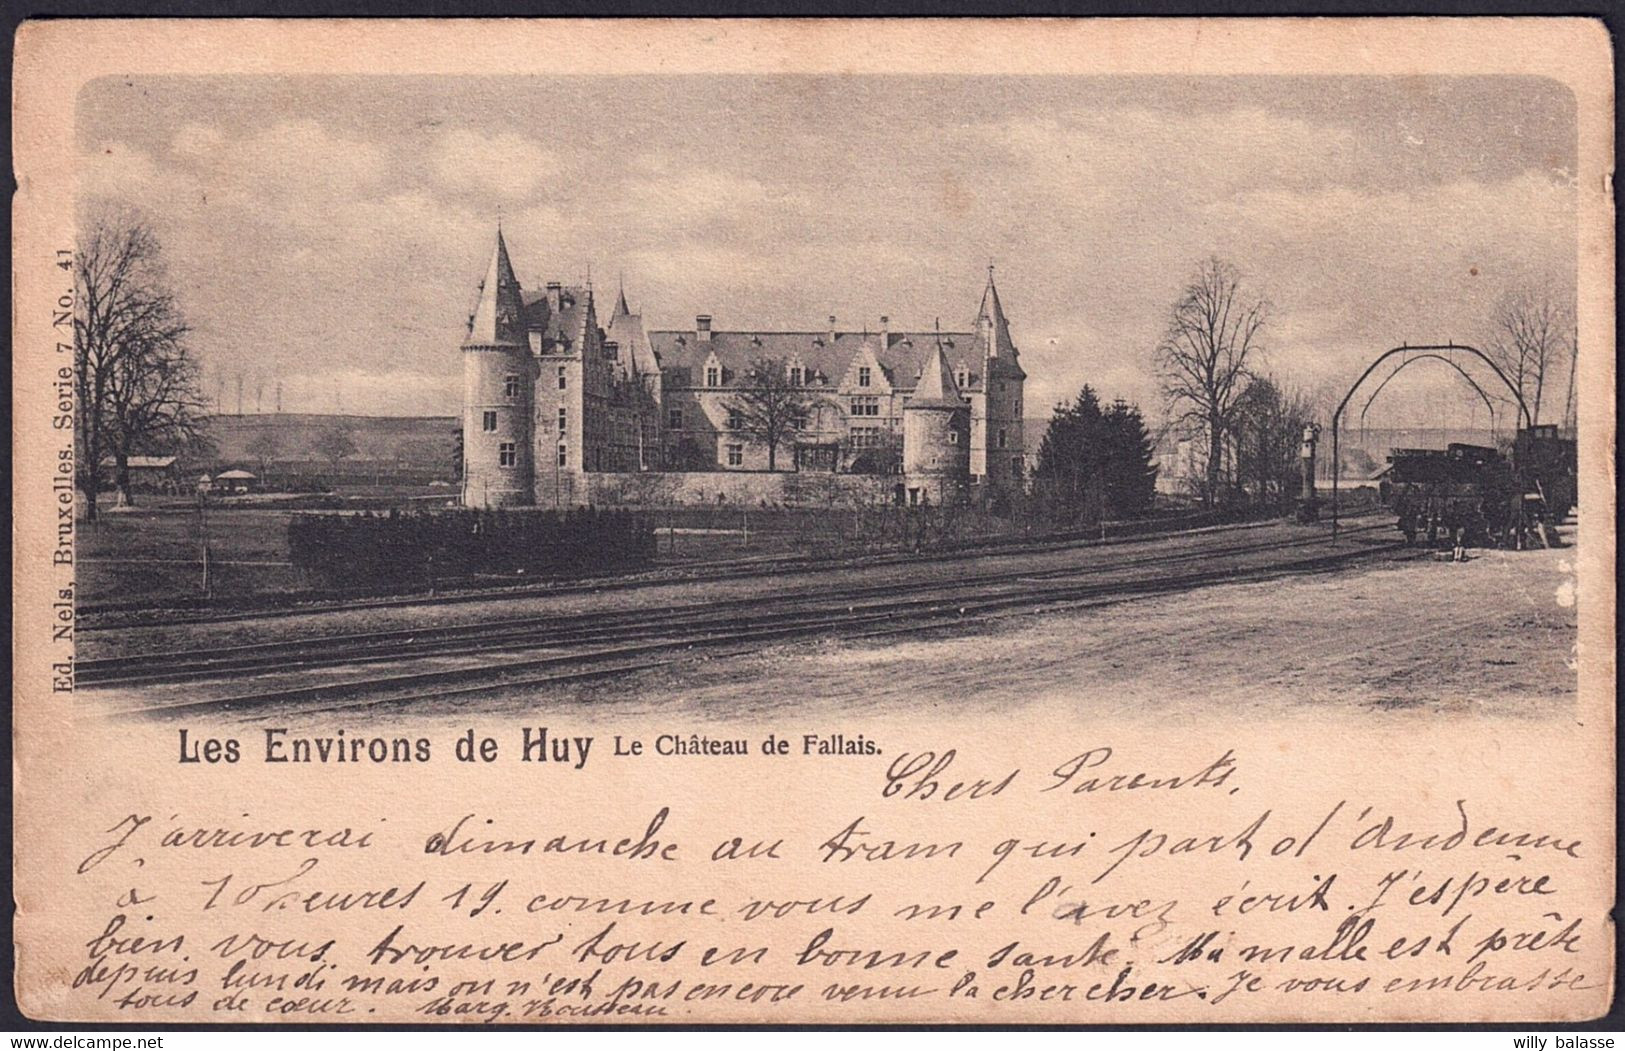 Ed. Nels, Bruxelles. Serie 7 No. 41
Les Environs de Huy Le Château de Fallais.
Chers Parents,
J'arriverai dimanche au tram qui part d'Andenne
à 10 heures 19. comme vous me l'avez écrit. J'espère
bien vous trouver tous en bonne santé. Ma malle est prête
depuis lundi mais on n'est pas encore venu la chercher. Je vous embrasse
tous de cœur. Marg. Rousseau.
willy balasse